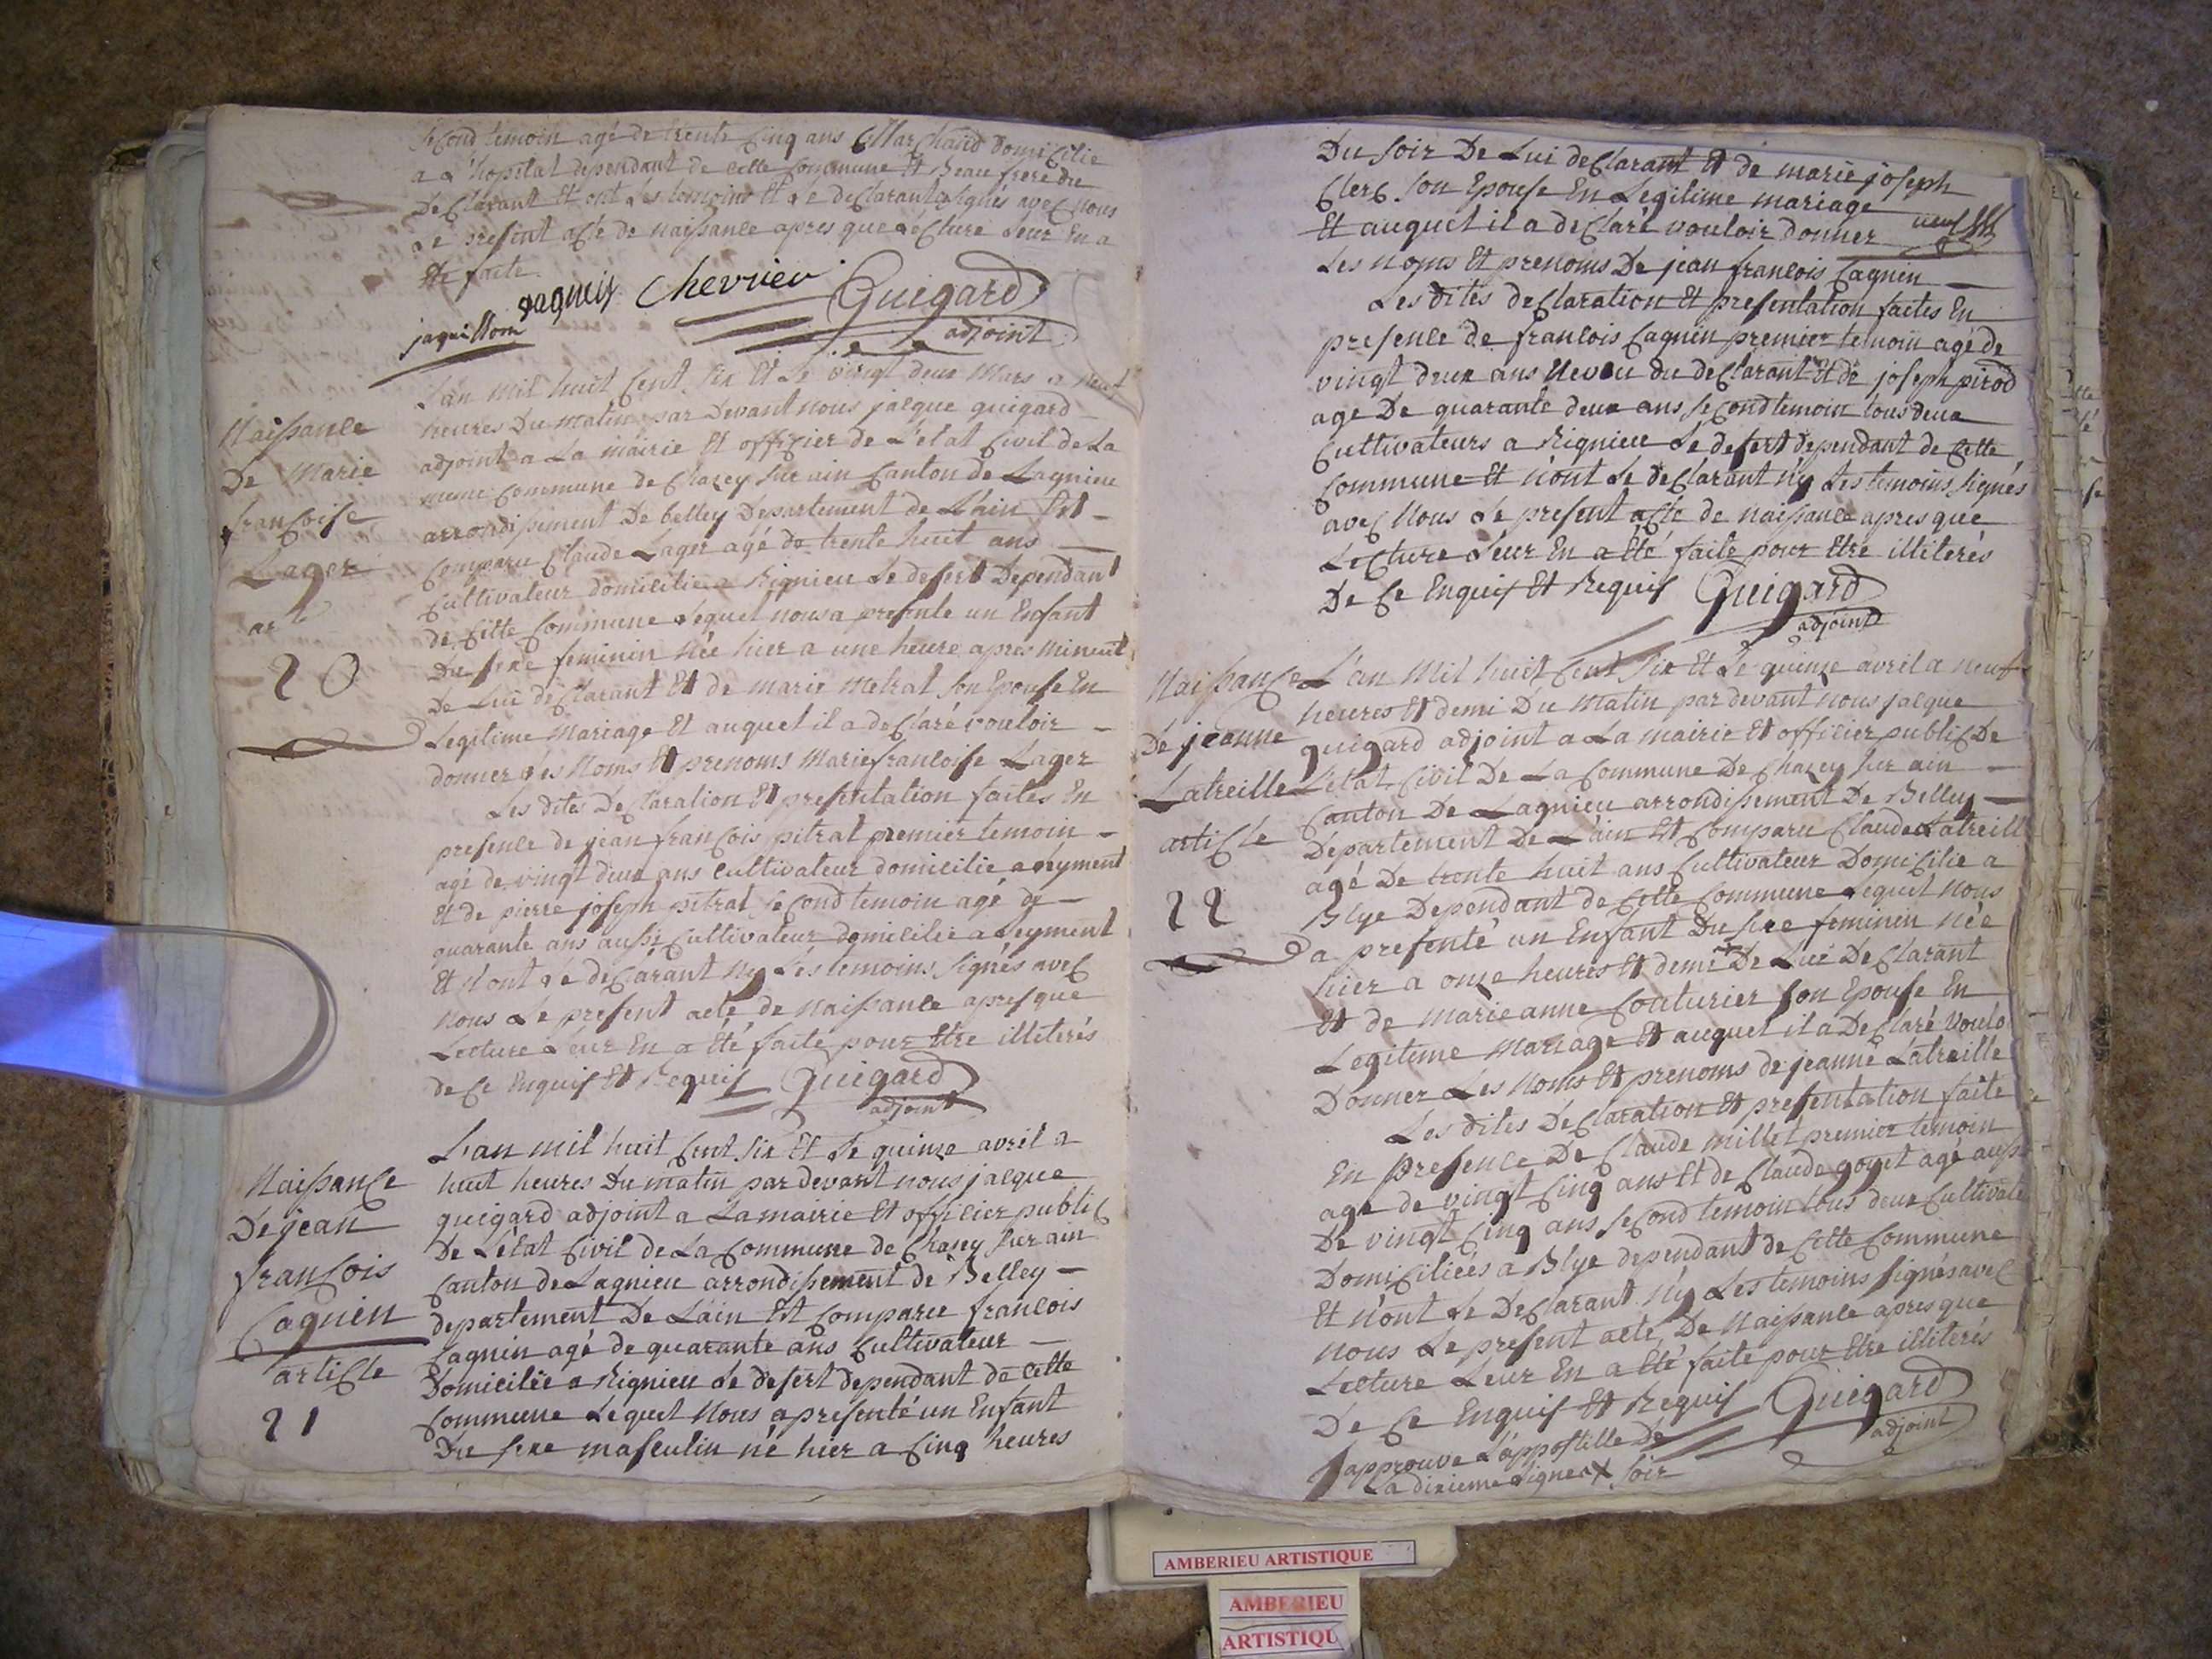 second temoin agé de trente Cinq ans Marchand domicilie
a L'hopital dependant de cette Commune Et Beau frere du
declarant Et ont Les temoins Et Le declarant signés avec nous
Le present acte de naissance apres que Lecture Leur En a
Ete faite.
jaquillom jaquin Chevrier Guigard
adjoint
L'an mil huit Cent six Et Le vingt deux Mars a neuf
heures Du matin par Devant nous jacque guigard
adjoint a La mairie Et officier de L'etat Civil de La
Commune de Chazey sur ain Canton de Lagnieu
arrondissement De belley Departement de L'ain Est
Comparu Claude Lager agé de trente huit ans
Cultivateur domicilie a Rignieu Le desert Dependant
de Cette Commune Lequel nous a presenté un Enfant
Du sexe feminin Née hier a une heure apres minuit
De Lui declarant Et de marie metrat son Epouse En
Legitime Mariage Et auquel il a declaré vouloir
donner Les Noms Et prenoms Marie francoise Lager
Les dites Declaration Et presentation faites En
presence de jean francois pitrat premier temoin
agé de vingt deux ans Cultivateur domicilie a Leyment
Et de pierre joseph pitrat second temoin agé de
quarante ans aussi Cultivateur domicilie a Leyment
Et N'ont Le declarant Ny Les temoins signés avec
Nous Le present acte de Naissance apres que
Lecture Leur En a Eté faite pour Etre illiterés
de Ce Enquis Et Requis Guigard
adjoint
Naissance
De Marie
francoise
Lager
arle
20
L'an mil huit Cent six Et Le quinze avril a
huit heures Du matin par devant nous jacque
guigard adjoint a La mairie Et officier public
De L'état Civil de La Commune de Chazey sur ain
Canton de Lagnieu arrondissement de Belley
departement De L'ain Est Comparu francois
Cagnin agé de quarante ans Cultivateur
Domicilié a Rignieu Le desert dependant de cette
Commune Lequel Nous a presenté un Enfant
Du sexe masculin né hier a Cinq heures
Naissance
De jean
francois
Cagnin
article
21
Du soir De Lui declarant Et de marie joseph
Clerc son Epouse En Legitime mariage
Et auquel il a declaré vouloir donner
Les Noms Et prenoms De jean francois Cagnin
Les dites declaration Et presentation faites En
presence de francois Cagnin premier temoin agé de
vingt deux ans Neveu du declarant Et de joseph pirod
age De quarante deux ans second temoin tous deux
Cultivateurs a Rignieu Le desert dependant de Cette
Commune Et n'ont Le declarant Ny Les temoins signés
avec Nous Le present acte de naissance apres que
Lecture Leur En a Eté faite pour Etre illiterés
De Ce Enquis Et Requis Guigard
adjoint
Naissance
De jeanne
Latreille
article
22
L'an Mil huit Cent six Et Le quinze avril a neuf
heures Et demi Du Matin par devant Nous jacque
guigard adjoint a La mairie Et officier public De
L'état Civil De La Commune De Chazey sur ain
Canton De Lagnieu arrondissement De Belley
Departement De L'ain Est Comparu Claude Latreill
agé De trente huit ans Cultivateur Domicilie a
Blye Dependant de Cette Commune Lequel Nous
a presenté un Enfant Du sexe feminin Née
hier a onze heures Et demi De Lui Declarant
Et de marie anne Couturier son Epouse En
Legitime Mariage Et auquel il a Declaré voulo
Donner Les Noms Et prenoms de jeanne Latreille
Les dites Declaration Et presentation faite
En Presence De Claude millet premier temoin
agé de vingt Cinq ans Et de Claude goyet agé auss
De vingt Cinq ans second temoin tous deux Cultivate
Domiciliées a Blye dependant de Cette Commune
Et N'ont Le Declarant Ny Les temoins signés avec
Nous Le present acte De Naissance apres que
Lecture Leur En a Eté faite pour Etre illiterés
De Ce Enquis Et Requis Guigard
adjoint
J'approuve L'appostille De
La dixieme Ligne X soir
AMBERIEU ARTISTIQUE
AMBERIEU
ARTISTIQU